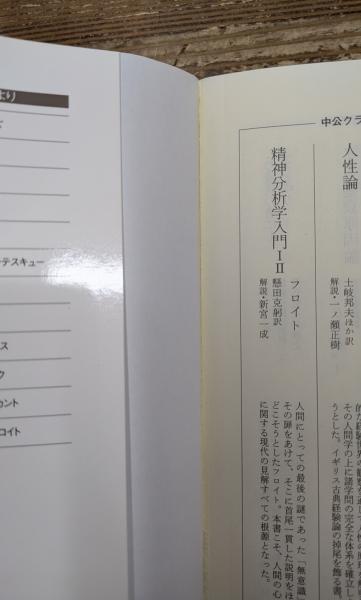 より
ンテスキュー
ス
ク
カント
ロイト
中公クラ
人性論
土岐邦夫ほか訳
解説・一ノ瀬正樹
的な経験世界の観察を通して人性の原理
その人間学の上に諸学問の完全な体系を確立し
うとした。イギリス古典経験論の掉尾を飾る書。
精神分析学入門ⅠⅡ
フロイト
懸田克躬訳
解説・新宮一成
人間にとっての最後の謎であった「無意識」
その扉をあけて、そこに首尾一貫した説明をほ
どこそうとしたフロイト。本書こそ、人間の心
に関する現代の見解すべての根源となった。